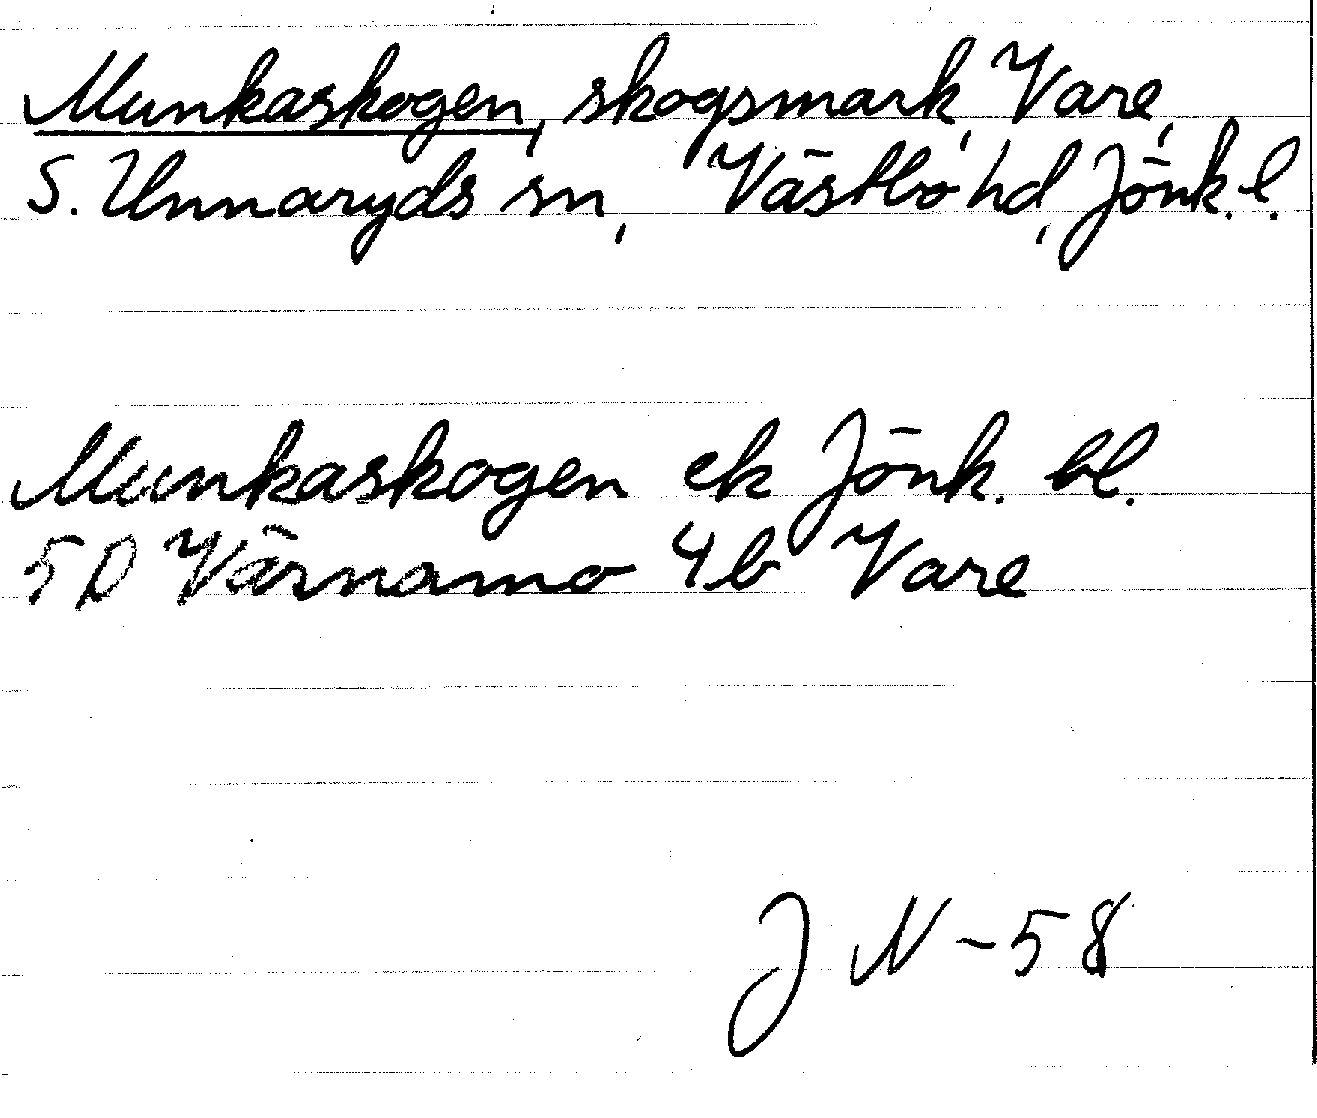 Munkaskogen, skogsmark, Vare,
S. Unnaryds sn, Västbo hd, Jönk. l.
Munkaskogen ek Jönk. bl.
5D Värnamo 4b Vare
J N - 58